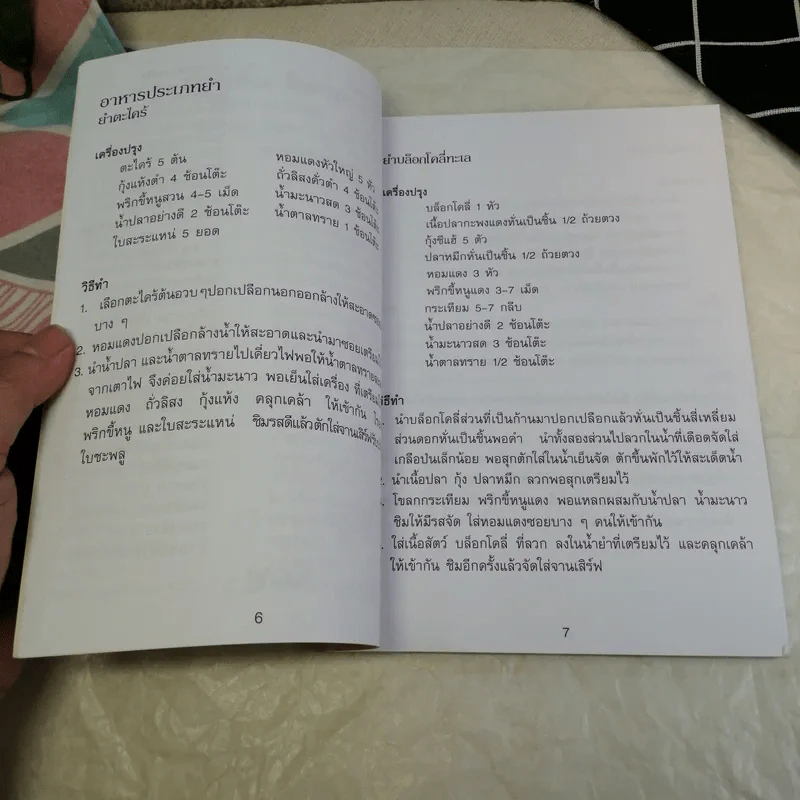 อาหารประเภทยำ
ยำตะไคร้
เครื่องปรุง
ตะไคร้ 5 ต้น
กุ้งแห้งตำ 4 ช้อนโต๊ะ
พริกขี้หนูสวน 4-5 เม็ด
น้ำปลาอย่างดี 2 ช้อนโต๊ะ
ใบสะระแหน่ 5 ยอด
หอมแดงหัวใหญ่ 5 หัว
ถั่วลิสงคั่วตำ 4 ช้อนโต๊ะ
น้ำมะนาวสด 3 ช้อนโต๊ะ
น้ำตาลทราย 1 ช้อนโต๊ะ
วิธีทำ
1. เลือกตะไคร้ต้นอวบ ๆปอกเปลือกนอกออกล้างให้สะอาด
บาง ๆ
2. หอมแดงปอกเปลือกล้างน้ำให้สะอาดและนำมาซอยเตรียม
3. นำน้ำปลา และน้ำตาลทรายไปเคี่ยวไฟพอให้น้ำตาลทราย
จากเตาไฟ จึงค่อยใส่น้ำมะนาว พอเย็นใส่เครื่อง ที่เตรียม
หอมแดง ถั่วลิสง กุ้งแห้ง คลุกเคล้า ให้เข้ากัน
พริกขี้หนู และใบสะระแหน่ ชิมรสดีแล้วตักใส่จานเสิร์ฟ
ใบชะพลู
6
ยำบล๊อกโคลี่ทะเล
เครื่องปรุง
บล๊อกโคลี่ 1 หัว
เนื้อปลากะพงแดงหั่นเป็นชิ้น 1/2 ถ้วยตวง
กุ้งชีแฮ้ 5 ตัว
ปลาหมึกหั่นเป็นชิ้น 1/2 ถ้วยตวง
หอมแดง 3 หัว
พริกขี้หนูแดง 3-7 เม็ด
กระเทียม 5-7 กลีบ
น้ำปลาอย่างดี 2 ช้อนโต๊ะ
น้ำมะนาวสด 3 ช้อนโต๊ะ
น้ำตาลทราย 1/2 ช้อนโต๊ะ
วิธีทำ
นำบล๊อกโคลี่ส่วนที่เป็นก้านมาปอกเปลือกแล้วหั่นเป็นชิ้นสี่เหลี่ยม
ส่วนดอกหั่นเป็นชิ้นพอคำ นำทั้งสองส่วนไปลวกในน้ำที่เดือดจัดใส่
เกลือป่นเล็กน้อย พอสุกตักใส่ในน้ำเย็นจัด ตักขึ้นพักไว้ให้สะเด็ดน้ำ
นำเนื้อปลา กุ้ง ปลาหมึก ลวกพอสุกเตรียมไว้
โขลกกระเทียม พริกขี้หนูแดง พอแหลกผสมกับน้ำปลา น้ำมะนาว
ชิมให้มีรสจัด ใส่หอมแดงซอยบาง ๆ คนให้เข้ากัน
ใส่เนื้อสัตว์ บล๊อกโคลี่ ที่ลวก ลงในน้ำยำที่เตรียมไว้ และคลุกเคล้า
ให้เข้ากัน ชิมอีกครั้งแล้วจัดใส่จานเสิร์ฟ
7